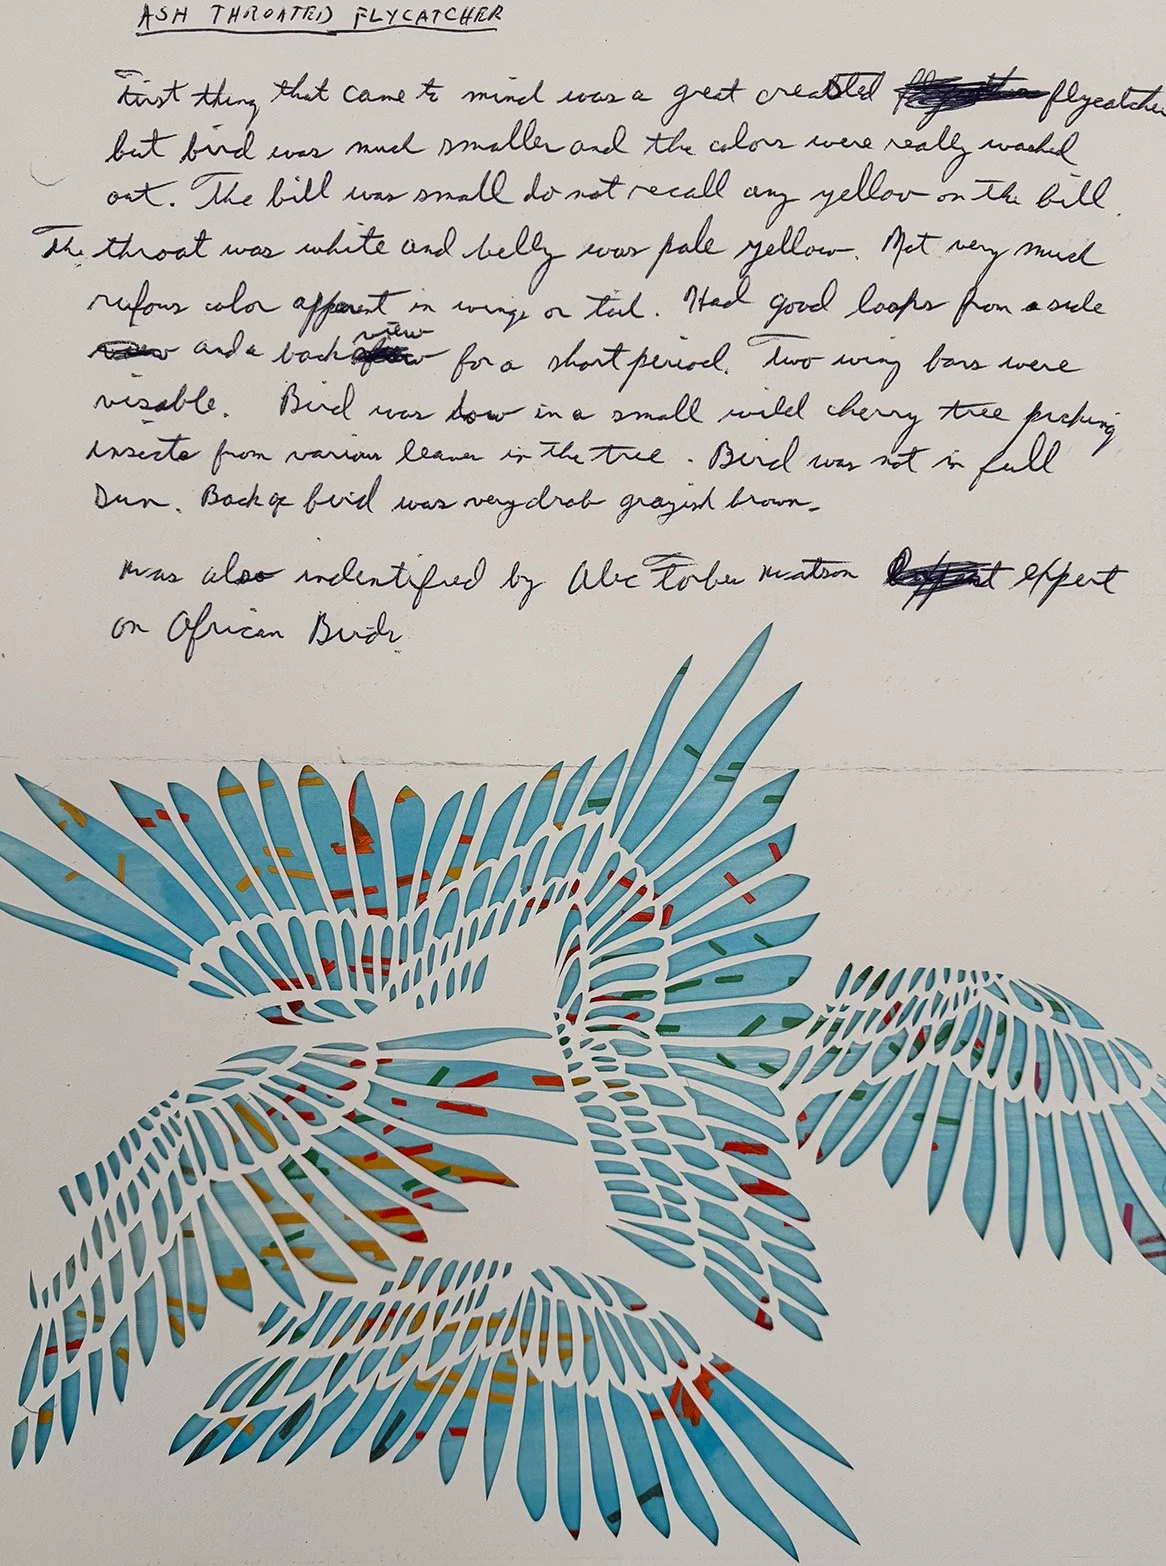 ASH THROATED FLYCATCHER
First thing that came to mind was a great creasted flycatcher
but bird was much smaller and the colors were really washed
out. The bill was small do not recall any yellow on the bill.
The throat was white and belly was pale yellow. Not very much
rufous color apparent in wings or tail. Had good looks from a side
view and a back view for a short period. Two wing bars were
visable. Bird was low in a small wild cherry tree picking
insects from various leaves in the tree. Bird was not in full
Sun. Back of bird was very drab grayish brown.
Was also indentified by Alec Forbes Watson expert
on African Birds.